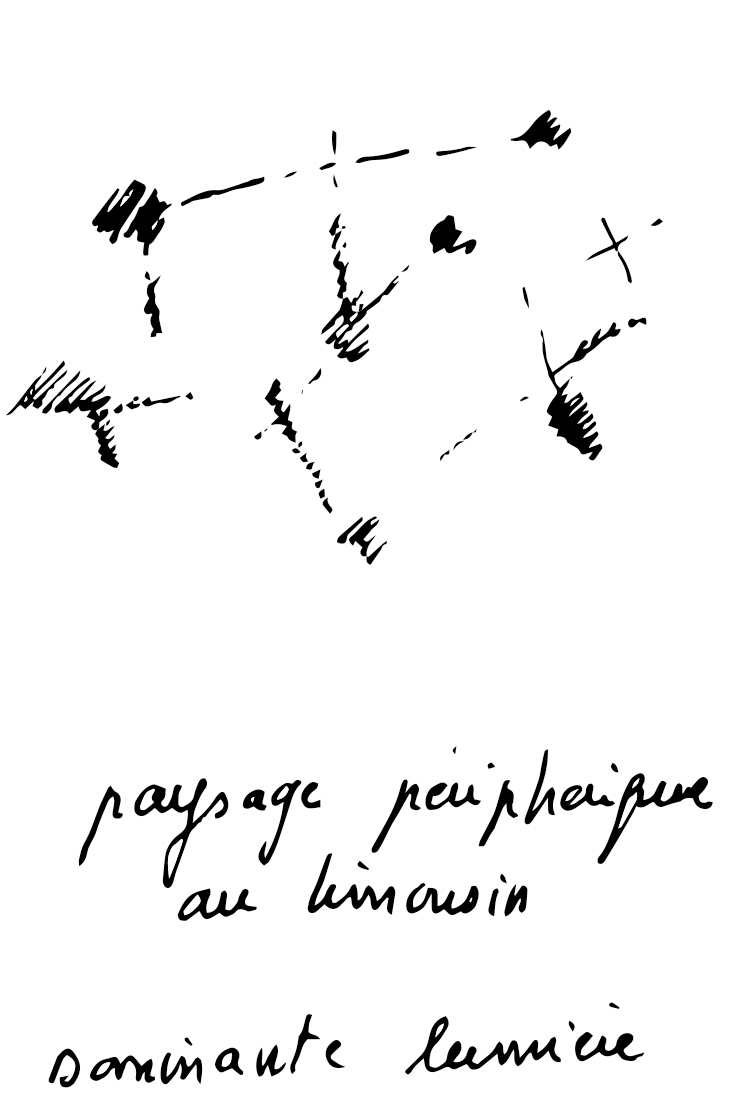 paysage périphérique
au limousin
dominante lumière